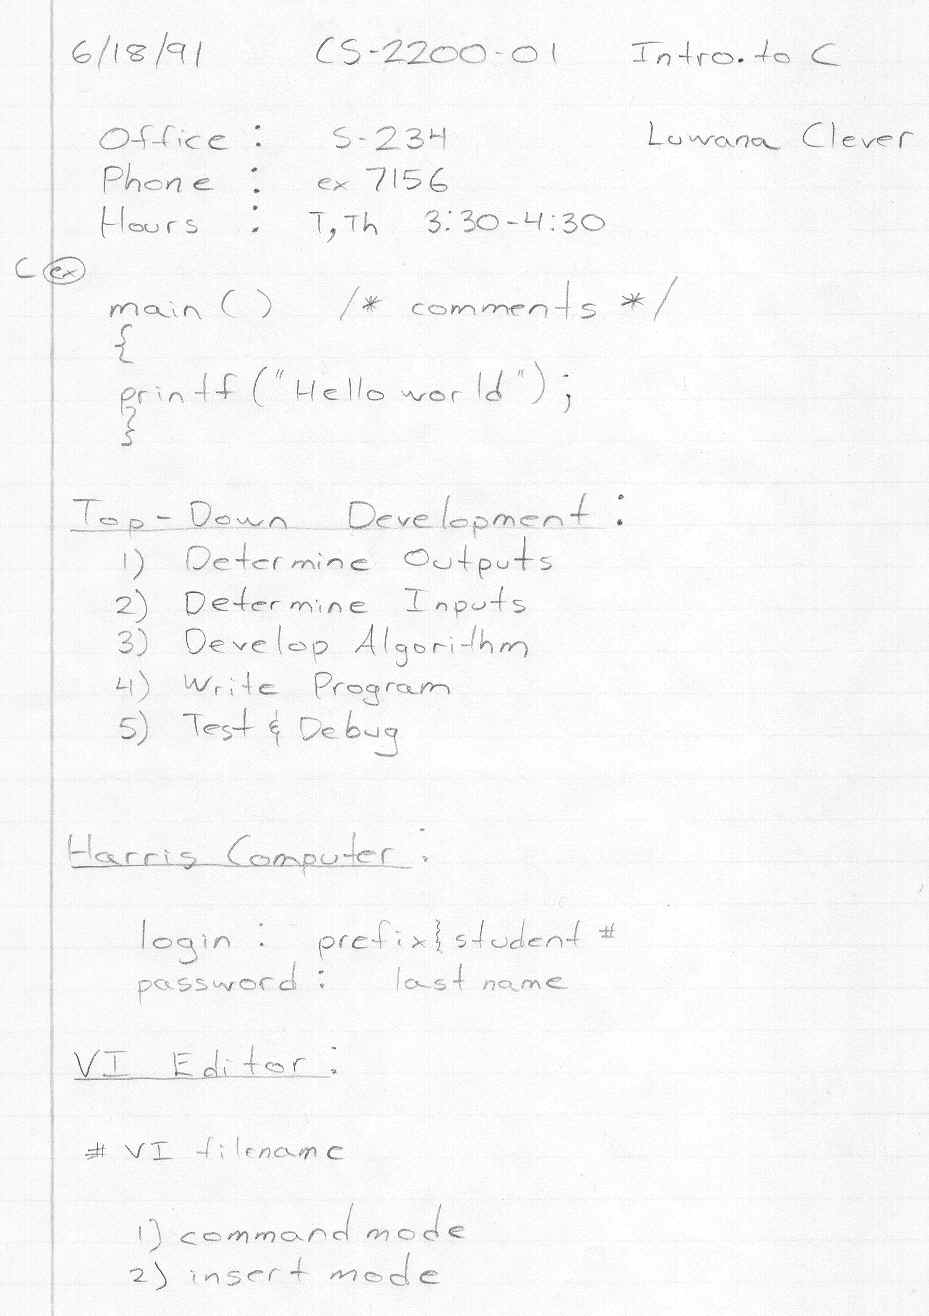 6/18/91 CS-2200-01 Intro. to C
Office : S-234 Luwana Clever
Phone : ex 7156
Hours : T, Th 3:30-4:30
C ex
main ( ) /* comments */
{
printf ("Hello world") ;
}
Top-Down Development :
1) Determine Outputs
2) Determine Inputs
3) Develop Algorithm
4) Write Program
5) Test & Debug
Harris Computer :
login : prefix & student #
password : last name
VI Editor :
# VI filename
1) command mode
2) insert mode